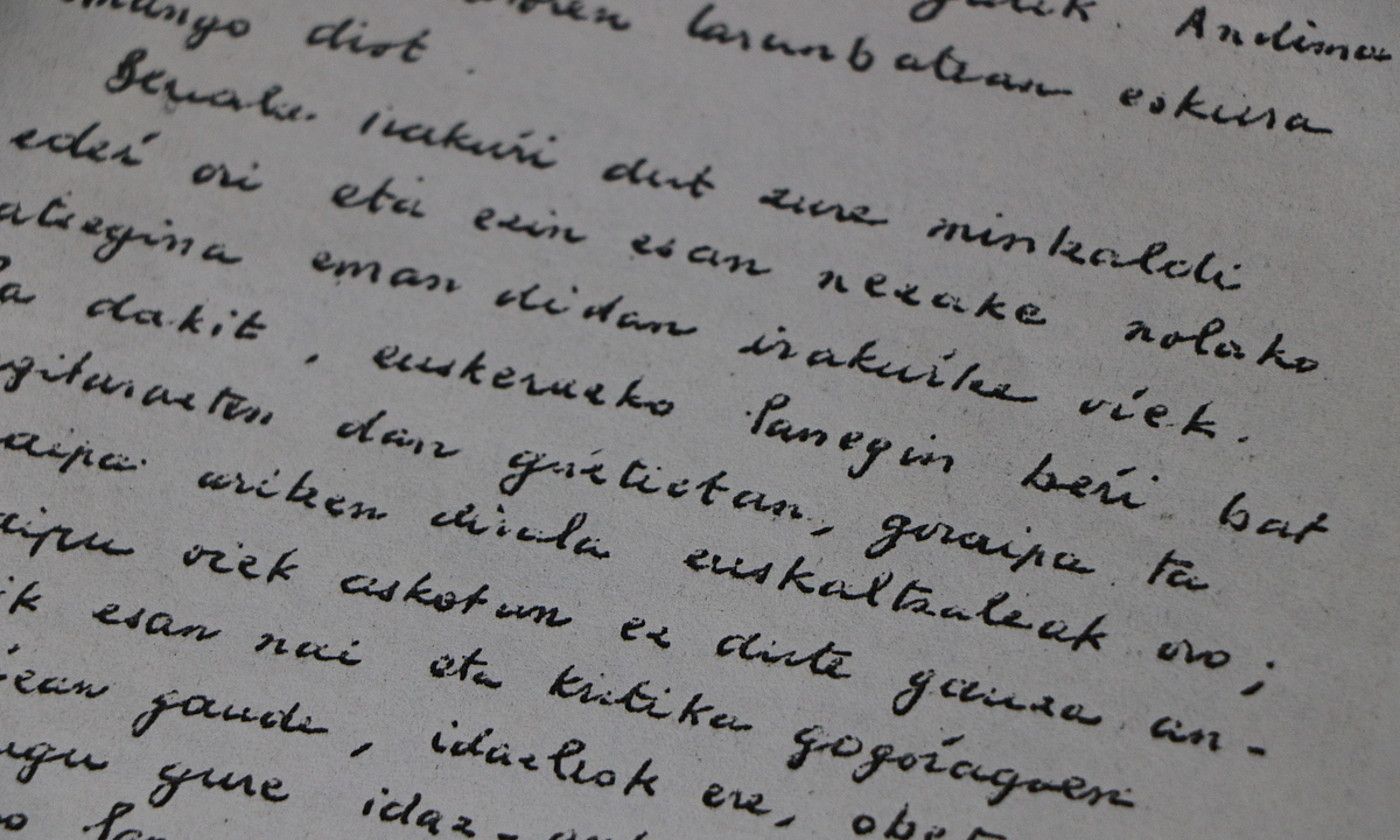 Andima
larunbatean eskura
mango diot.
irakuŕi dut zure minkaldi
edeŕ ori eta ezin esan nezake nolako
atsegina eman didan irakuŕtze oiek.
a dakit, euskerazko lanegin beŕi bat
gitaraetzen dan guŕetietan, goraipa ta
aipa aritzen dirala euskaltzaleak oro;
aipu oiek askotan ez dute gauza an-
ik esan nai eta kritika gogoŕagoen
ean gaude, idazleok ere, obet
ugu gure idaz-